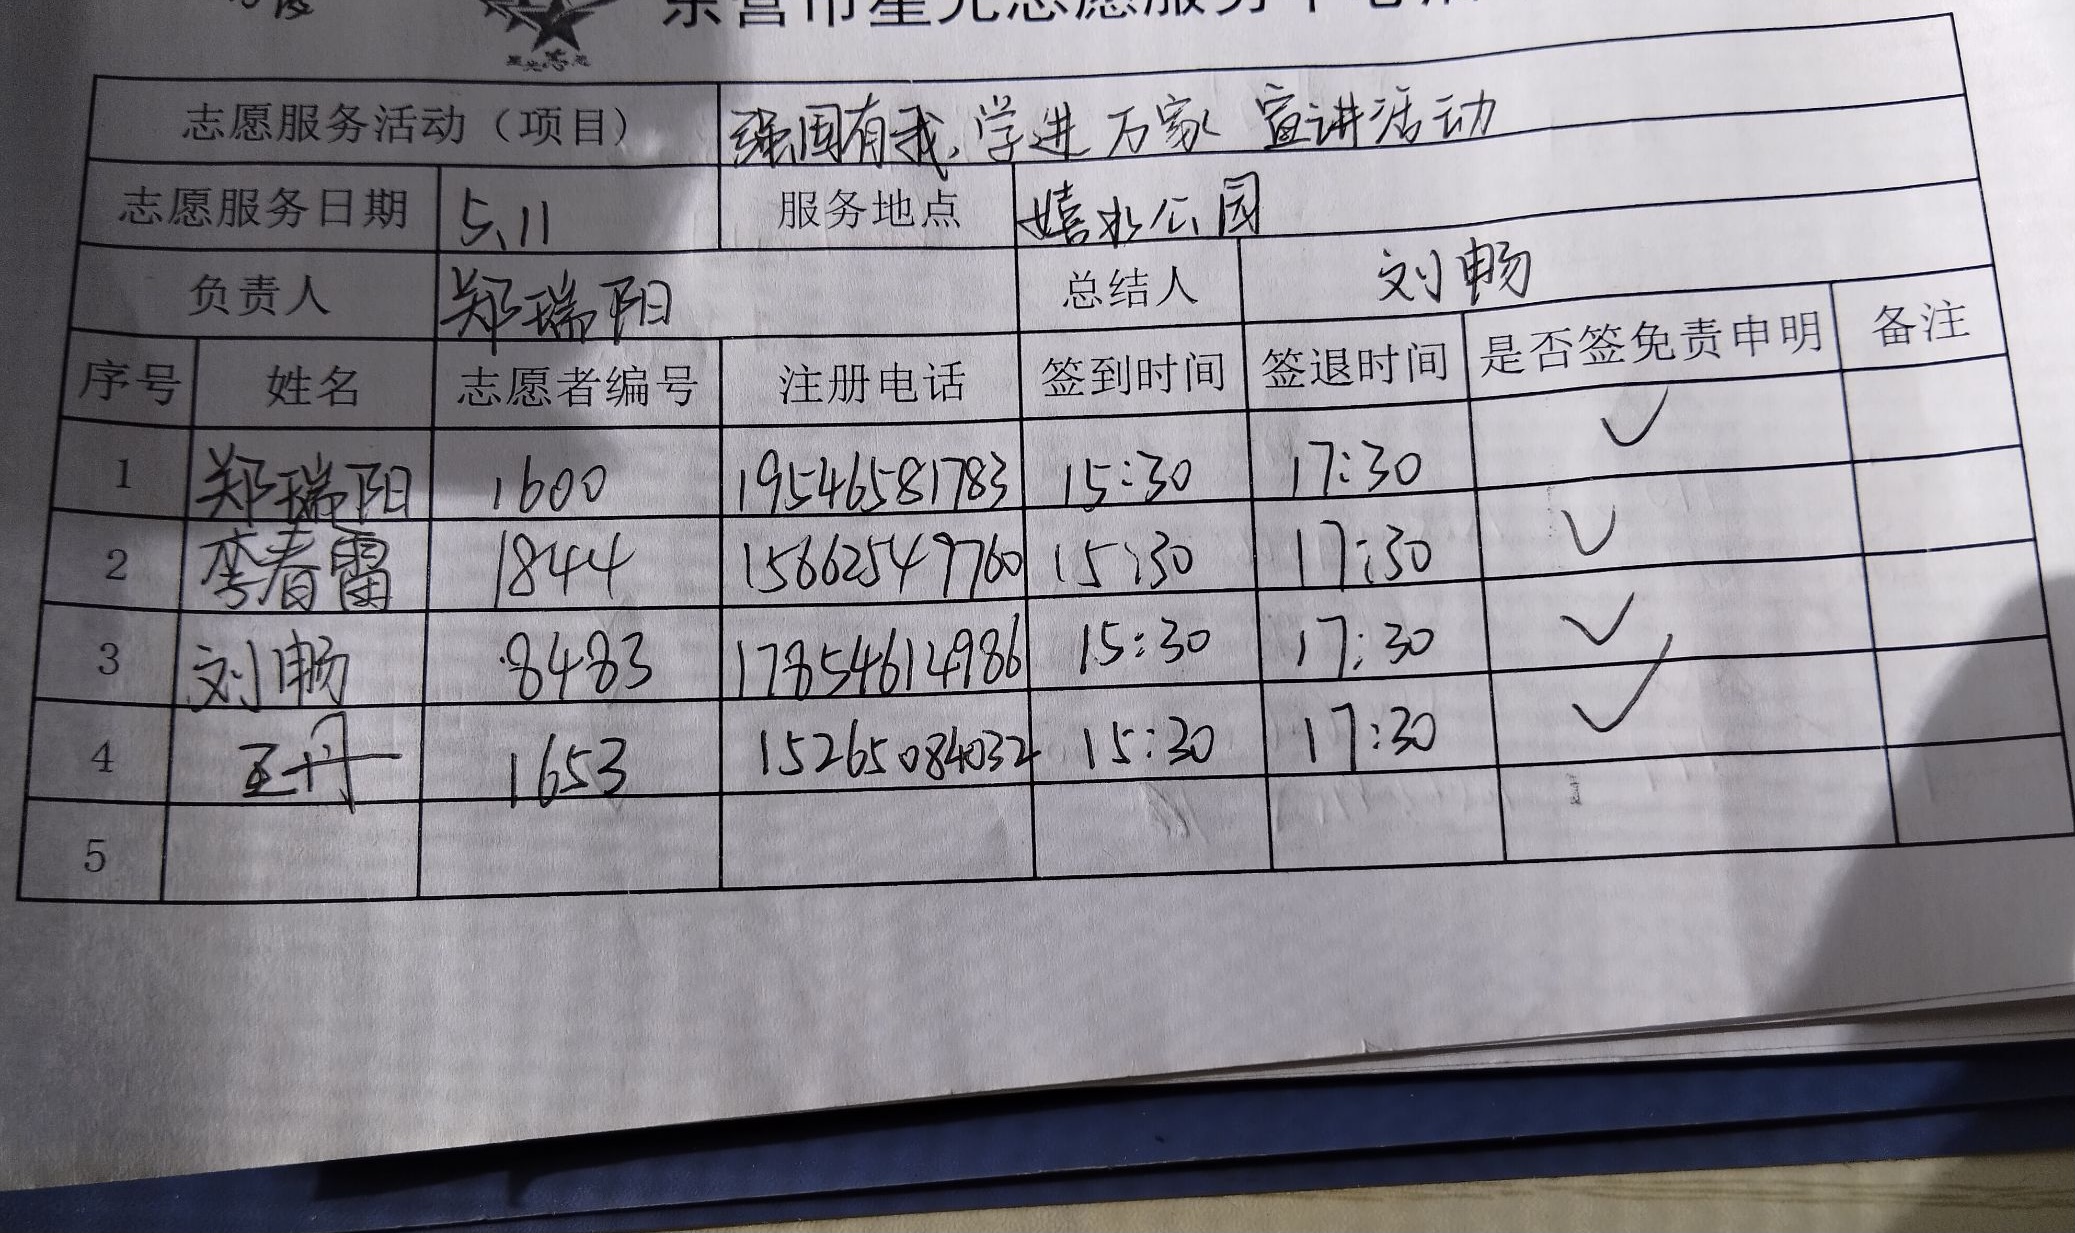 东营市星光志愿服务中心
星光志愿
志愿服务活动（项目） 强国有我,学进万家 宣讲活动
志愿服务日期 5.11 服务地点 嬉水公园
负责人 郑瑞阳 总结人 刘畅
序号 姓名 志愿者编号 注册电话 签到时间 签退时间 是否签免责申明 备注
1 郑瑞阳 1600 19546581783 15:30 17:30 ✓
2 李春雷 1844 15662549760 15:30 17:30 ✓
3 刘畅 8483 17854614986 15:30 17:30 ✓
4 王丹 1653 15265084032 15:30 17:30 ✓
5